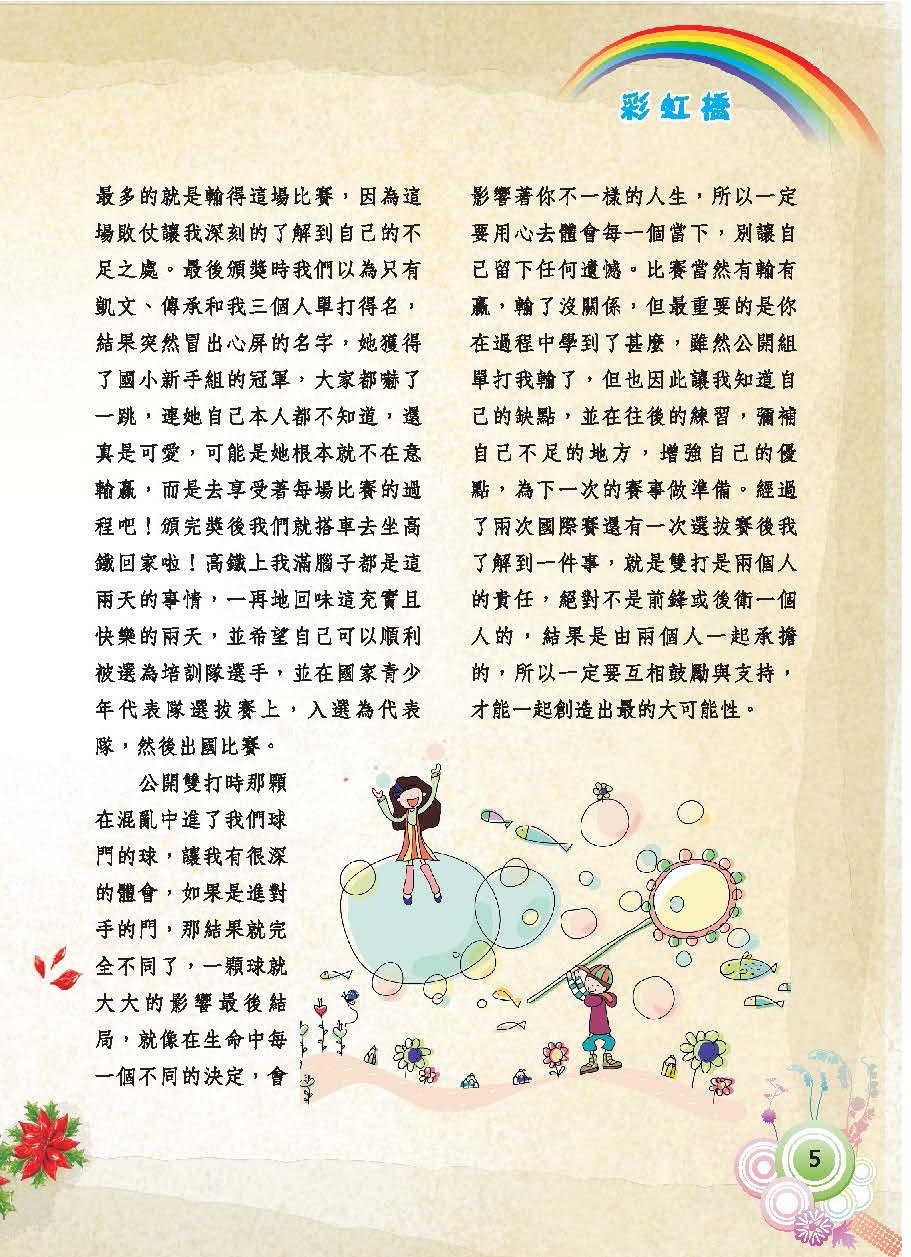 彩虹橋
最多的就是輸得這場比賽，因為這
場敗仗讓我深刻的了解到自己的不
足之處。最後頒獎時我們以為只有
凱文、傳承和我三個人單打得名，
結果突然冒出心屏的名字，她獲得
了國小新手組的冠軍，大家都嚇了
一跳，連她自己本人都不知道，還
真是可愛，可能是她根本就不在意
輸贏，而是去享受著每場比賽的過
程吧！頒完獎後我們就搭車去坐高
鐵回家啦！高鐵上我滿腦子都是這
兩天的事情，一再地回味這充實且
快樂的兩天，並希望自己可以順利
被選為培訓隊選手，並在國家青少
年代表隊選拔賽上，入選為代表
隊，然後出國比賽。
公開雙打時那顆
在混亂中進了我們球
門的球，讓我有很深
的體會，如果是進對
手的門，那結果就完
全不同了，一顆球就
大大的影響最後結
局，就像在生命中每
一個不同的決定，會
影響著你不一樣的人生，所以一定
要用心去體會每一個當下，別讓自
己留下任何遺憾。比賽當然有輸有
贏，輸了沒關係，但最重要的是你
在過程中學到了甚麼，雖然公開組
單打我輸了，但也因此讓我知道自
己的缺點，並在往後的練習，彌補
自己不足的地方，增強自己的優
點，為下一次的賽事做準備。經過
了兩次國際賽還有一次選拔賽後我
了解到一件事，就是雙打是兩個人
的責任，絕對不是前鋒或後衛一個
人的，結果是由兩個人一起承擔
的，所以一定要互相鼓勵與支持，
才能一起創造出最的大可能性。
5